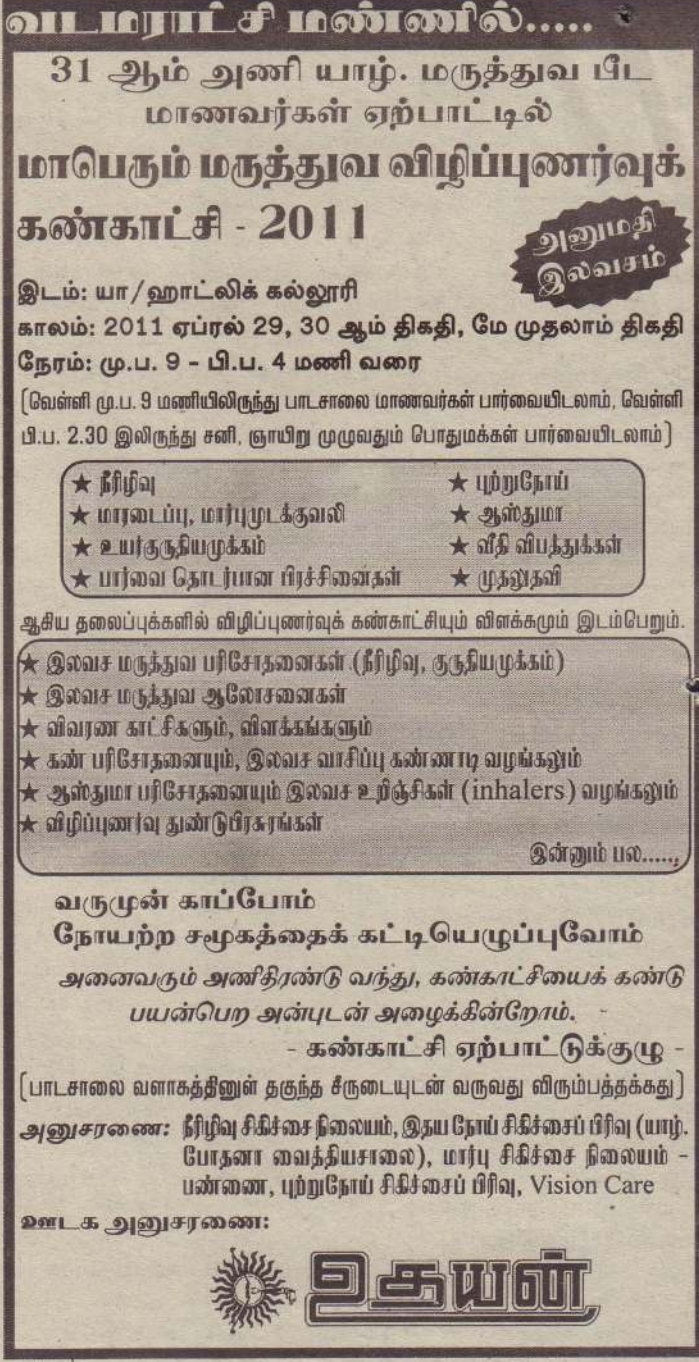 வடமராட்சி மண்ணில்.....
31 ஆம் அணி யாழ். மருத்துவ பீட
மாணவர்கள் ஏற்பாட்டில்
மாபெரும் மருத்துவ விழிப்புணர்வுக்
கண்காட்சி - 2011
அனுமதி
இலவசம்
இடம்: யா/ஹாட்லிக் கல்லூரி
காலம்: 2011 ஏப்ரல் 29, 30 ஆம் திகதி, மே முதலாம் திகதி
நேரம்: மு.ப. 9 - பி.ப. 4 மணி வரை
(வெள்ளி மு.ப. 9 மணியிலிருந்து பாடசாலை மாணவர்கள் பார்வையிடலாம், வெள்ளி
பி.ப. 2.30 இலிருந்து சனி, ஞாயிறு முழுவதும் பொதுமக்கள் பார்வையிடலாம்)
★ நீரிழிவு
★ மாரடைப்பு, மார்புமுடக்குவலி
★ உயர்குருதியமுக்கம்
★ பார்வை தொடர்பான பிரச்சினைகள்
★ புற்றுநோய்
★ ஆஸ்துமா
★ வீதி விபத்துக்கள்
★ முதலுதவி
ஆகிய தலைப்புக்களில் விழிப்புணர்வுக் கண்காட்சியும் விளக்கமும் இடம்பெறும்.
★ இலவச மருத்துவ பரிசோதனைகள் (நீரிழிவு, குருதியமுக்கம்)
★ இலவச மருத்துவ ஆலோசனைகள்
★ விவரண காட்சிகளும், விளக்கங்களும்
★ கண் பரிசோதனையும், இலவச வாசிப்பு கண்ணாடி வழங்கலும்
★ ஆஸ்துமா பரிசோதனையும் இலவச உறிஞ்சிகள் (inhalers) வழங்கலும்
★ விழிப்புணர்வு துண்டுபிரசுரங்கள்
இன்னும் பல.....,
வருமுன் காப்போம்
நோயற்ற சமூகத்தைக் கட்டியெழுப்புவோம்
அனைவரும் அணிதிரண்டு வந்து, கண்காட்சியைக் கண்டு
பயன்பெற அன்புடன் அழைக்கின்றோம்.
- கண்காட்சி ஏற்பாட்டுக்குழு -
(பாடசாலை வளாகத்தினுள் தகுந்த சீருடையுடன் வருவது விரும்பத்தக்கது)
அனுசரணை: நீரிழிவு சிகிச்சை நிலையம், இதய நோய் சிகிச்சைப் பிரிவு (யாழ்.
போதனா வைத்தியசாலை), மார்பு சிகிச்சை நிலையம் -
பண்ணை, புற்றுநோய் சிகிச்சைப் பிரிவு, Vision Care
ஊடக அனுசரணை:
உதயன்